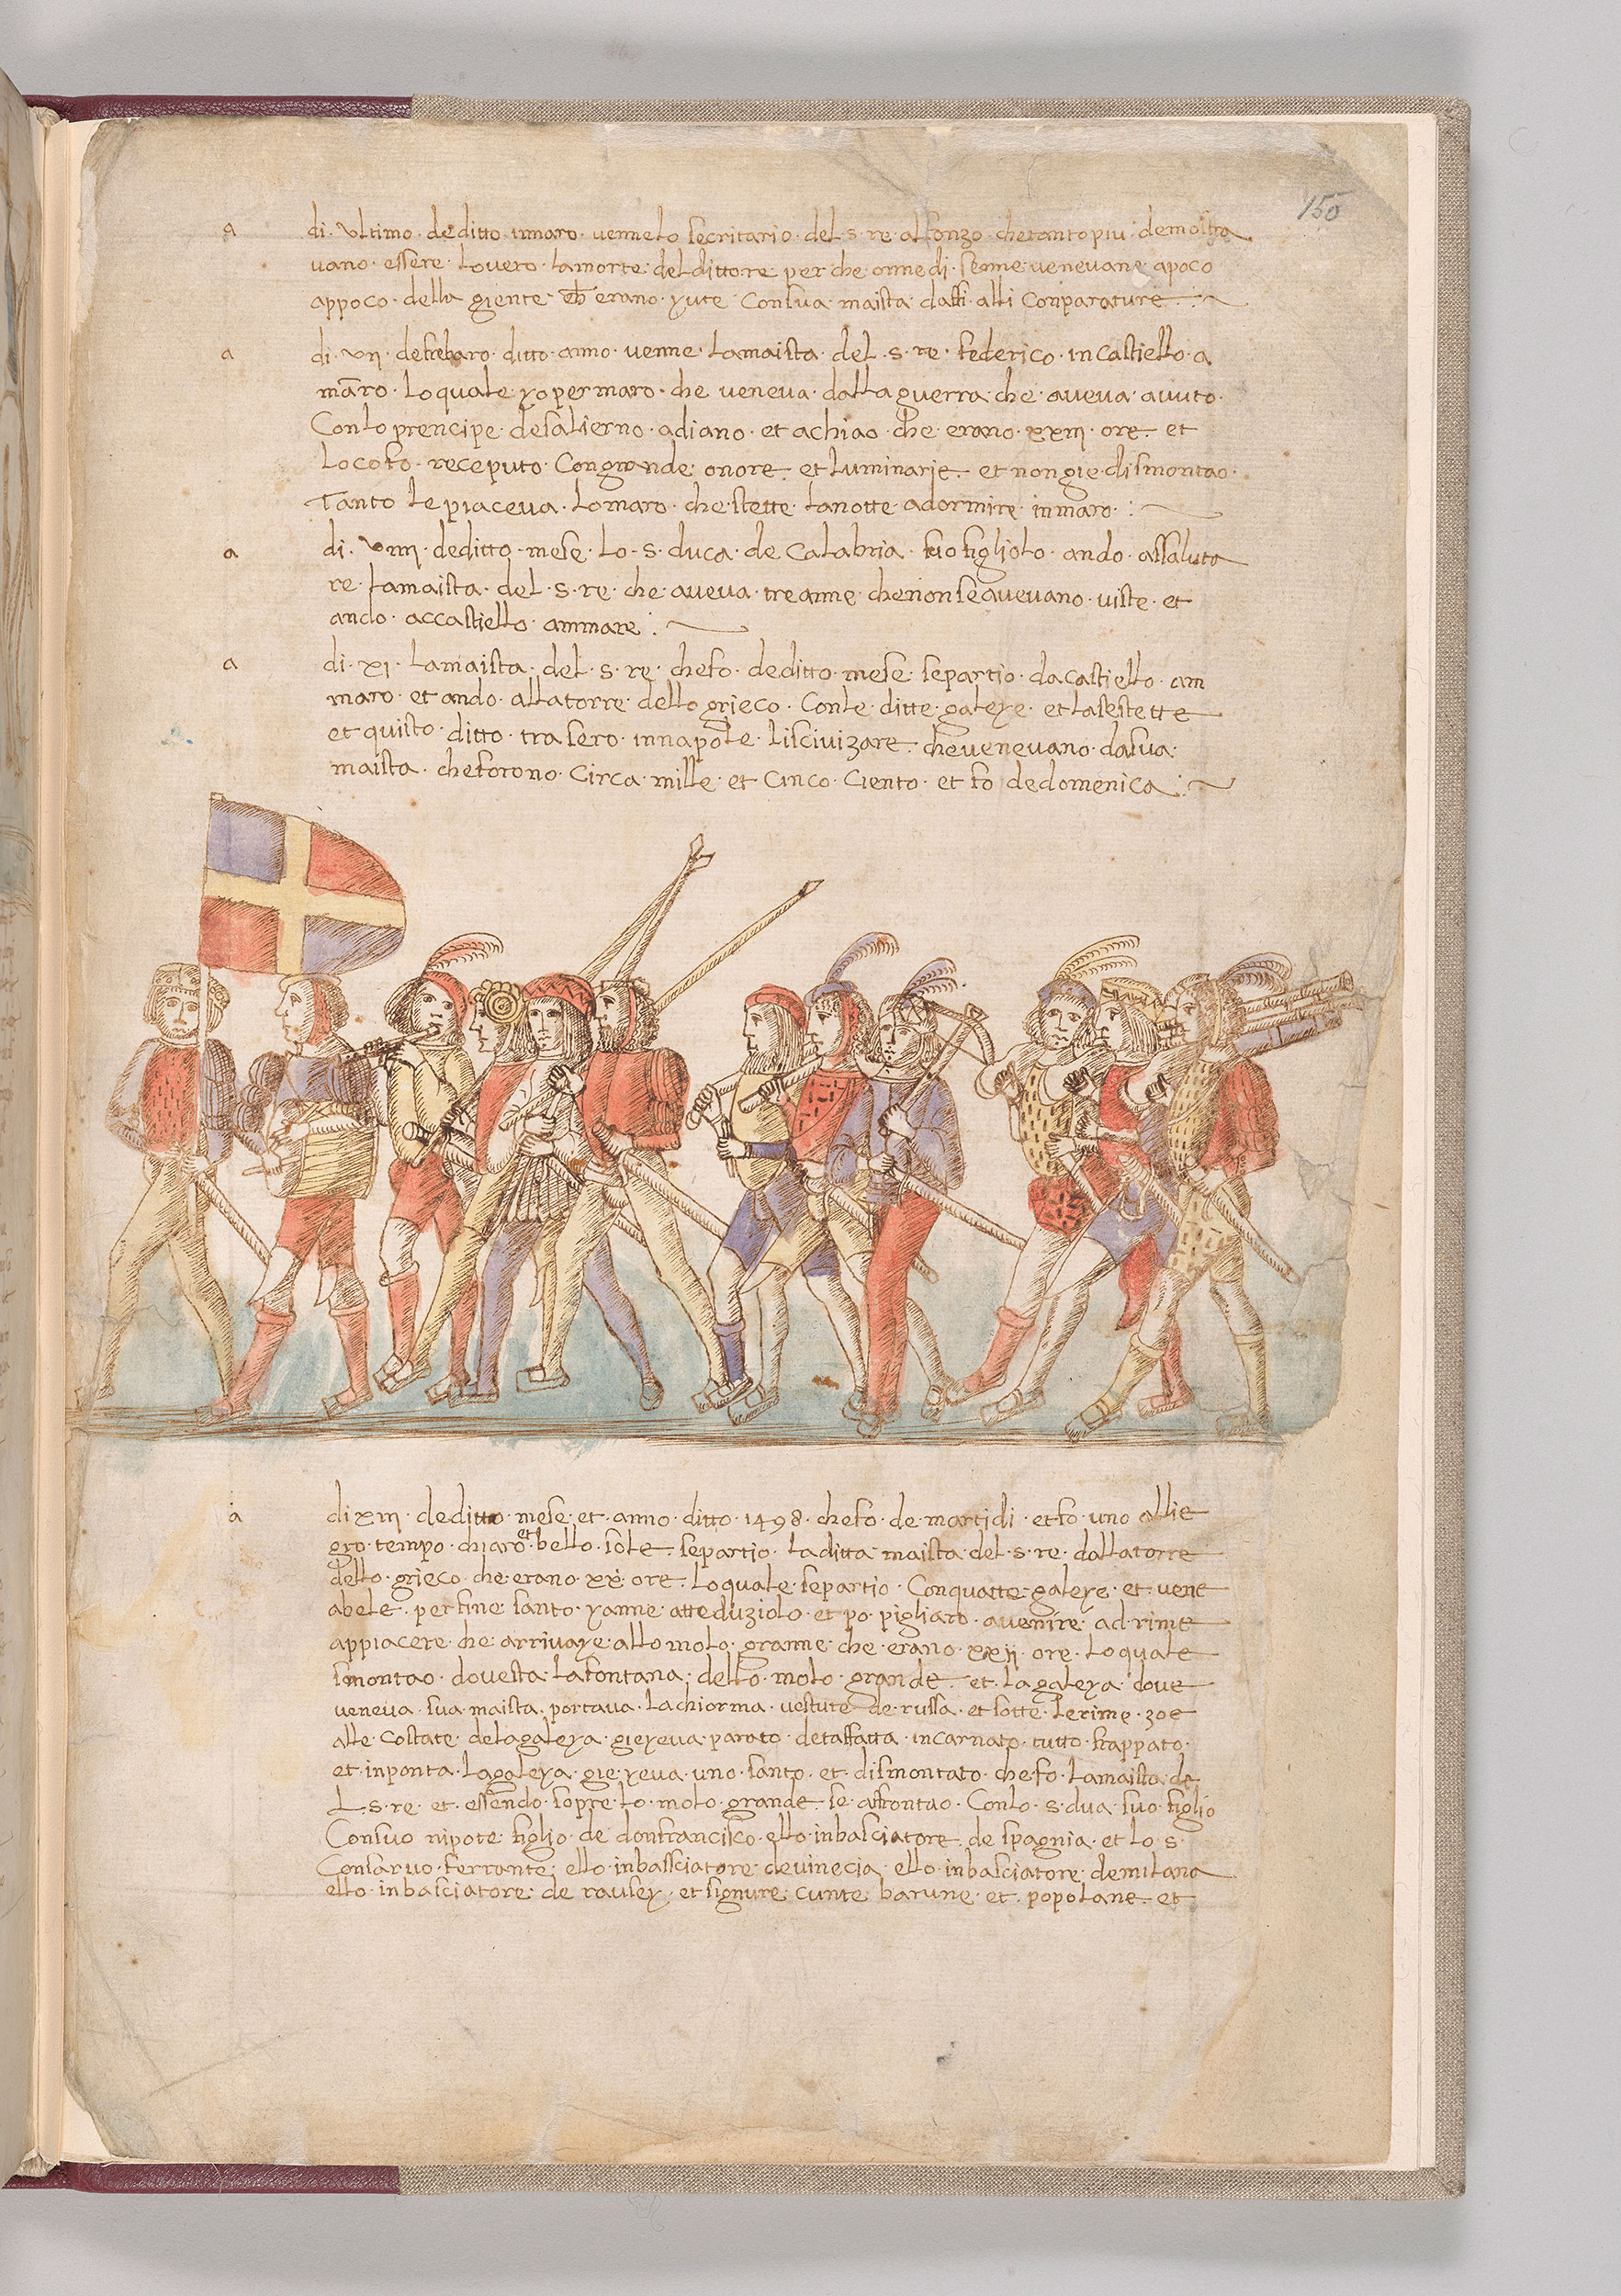 150
a di · ultimo · de ditto · innaro · venne lo secritario · del · s · re · alfonzo · che tanto piu · demostra
vano · essere · lo vero · la morte · del ditto re per che onne di · senne venevano apoco
appoco · della giente · erano · yute · Con sua · maista · dalli · alli Conparature
a di · vii · de frebaro · ditto · anno · venne · la maista · del · s · re · federico · in castiello · a
maro · lo quale · yo per maro · che veneva · dalla guerra · che · aveva · avuto ·
Con lo prencipe · de salierno · adiano · et achiao · che · erano · xxiii · ore · et
loco fo · receputo · Con grande · onore · et luminarie · et non gie · dismontao ·
Tanto le piaceva · lo maro · che stette · la notte · a dormire · in maro ·
a di · viiii · de ditto · mese · lo · s · duca · de Calabria · suo figliolo · ando · assaluta
re · la maista · del · s · re · che · aveva · tre anne · che non se avevano · viste · et
ando · accastiello · ammare
a di · xi · la maista · del · s · re · che fo · de ditto · mese · se partio · da castiello · am
maro · et ando · alla torre · dello grieco · Con le · ditte · galeye · et la se stette
et quisto · ditto · tra sero · in napole · li scivizare · che venevano · da sua ·
maista · che forono · Circa · mille · et Cinco · Ciento · et fo de domenica
a di xiii · de ditto · mese · et · anno · ditto · 1498 · che fo · de martidi · et fo · uno allie
gro · tempo · chiaro · et bello · sole · se partio · la ditta · maista · del · s · re · dalla torre
dello · grieco · che erano · xx · ore · lo quale · se partio · Con quatte · galeye · et · vene
a bele · per fine · santo · yanne · atteduziolo · et po · pigliaro · a venire · ad rime
appiacere · che · arrivaye · allo molo · granne · che · erano · xxii · ore · lo quale
smontao · dov esta · la fontana · dello · molo · grande · et · la galeya · dove
veneva · sua · maista · portava · la chiorma · vestute · de · russa · et sotte · le rime · zoe
alle · Costate · dela galeya · gie yeva · parato · de taffatta · incarnato · tutto · frappato ·
et · in ponta · la galeya · gie yeva · uno · santo · et · dismontato · che fo · la maista · de
l · s · re · et · essendo · sopre · lo · molo · grande · se · affrontao · Con lo · s · dua · suo · figlio
Con suo nipote · figlio · de donfrancisco · ello · inbasciatore · de spagnia · et lo · s ·
Consarvo · ferrante · ello · inbassciatore · de vinecia · ello · inbasciatore · de milana
ello · inbasciatore · de · et signure · Cunte · barune · et · popolane · et